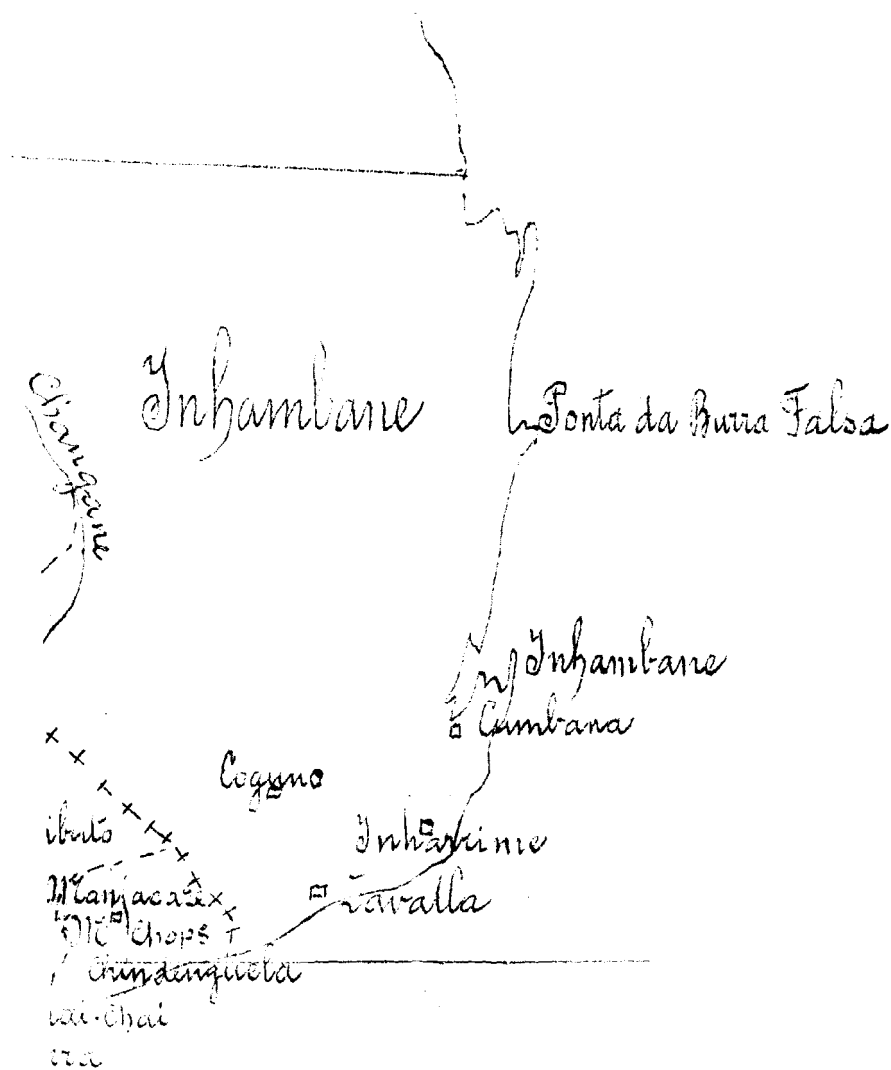 Inhambane
Changane
Ponta da Burra Falsa
Inhambane
Cumbana
Coguno
ibuto
Inharrime
Manjacaze
Zavalla
Mc Chops
Chindenguela
ai-Chai